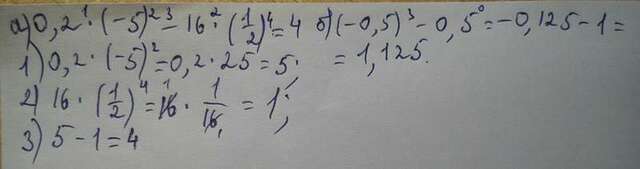 а) 0,2¹·(-5)²³-16²·(1/2)⁴=4 б) (-0,5)³-0,5⁰=-0,125-1=
1) 0,2·(-5)²=0,2·25=5; =1,125.
2) 16·(1/2)⁴=16¹·1/16₁=1;
3) 5-1=4